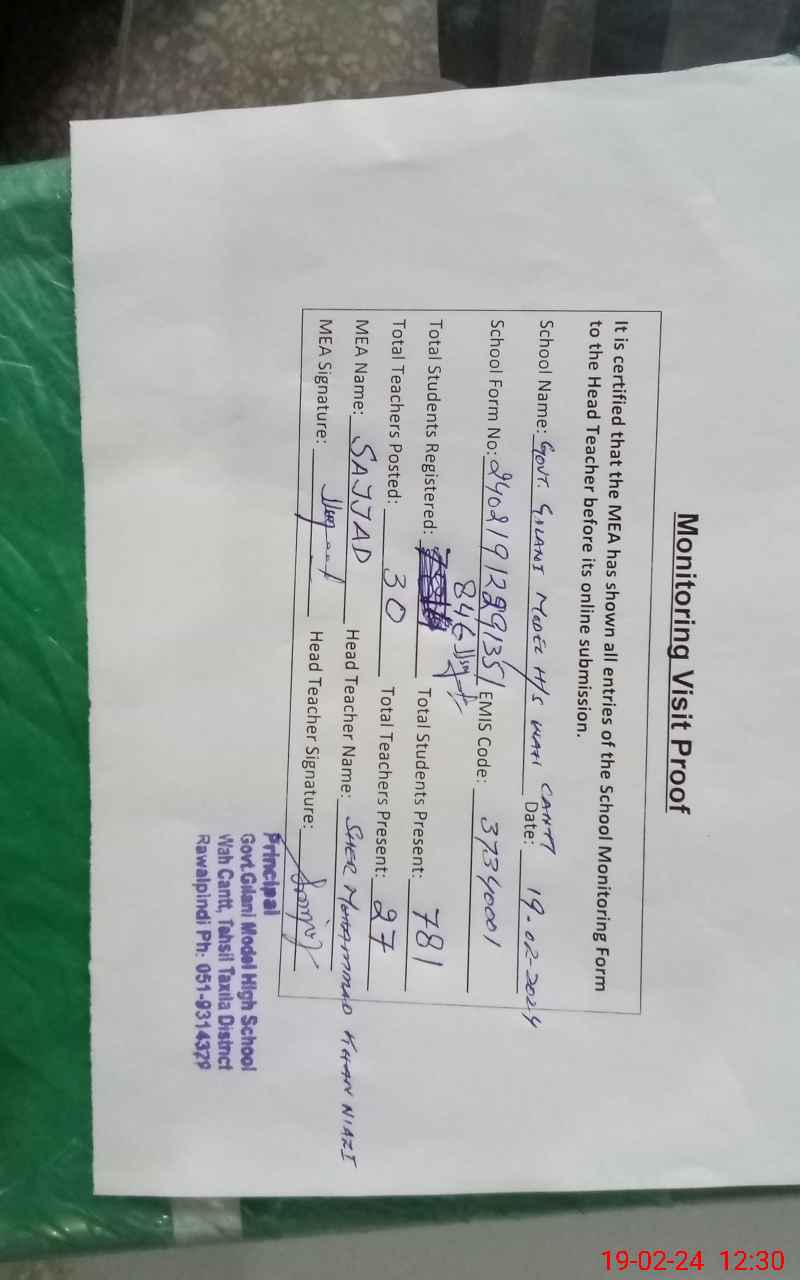 Monitoring Visit Proof
It is certified that the MEA has shown all entries of the School Monitoring Form
to the Head Teacher before its online submission.
School Name: GOVT. GILANI MODEL H/S WAH CANTT Date: 19-02-2024
School Form No: 24021912291351 EMIS Code: 37340001
846
Total Students Registered: Total Students Present: 781
Total Teachers Posted: 30 Total Teachers Present: 27
MEA Name: SAJJAD Head Teacher Name: SHER MOHAMMAD KHAN NIAZI
MEA Signature: Head Teacher Signature:
Principal
Govt.Gilani Model High School
Wah Cantt, Tahsil Taxila District
Rawalpindi Ph: 051-9314379
19-02-24 12:30